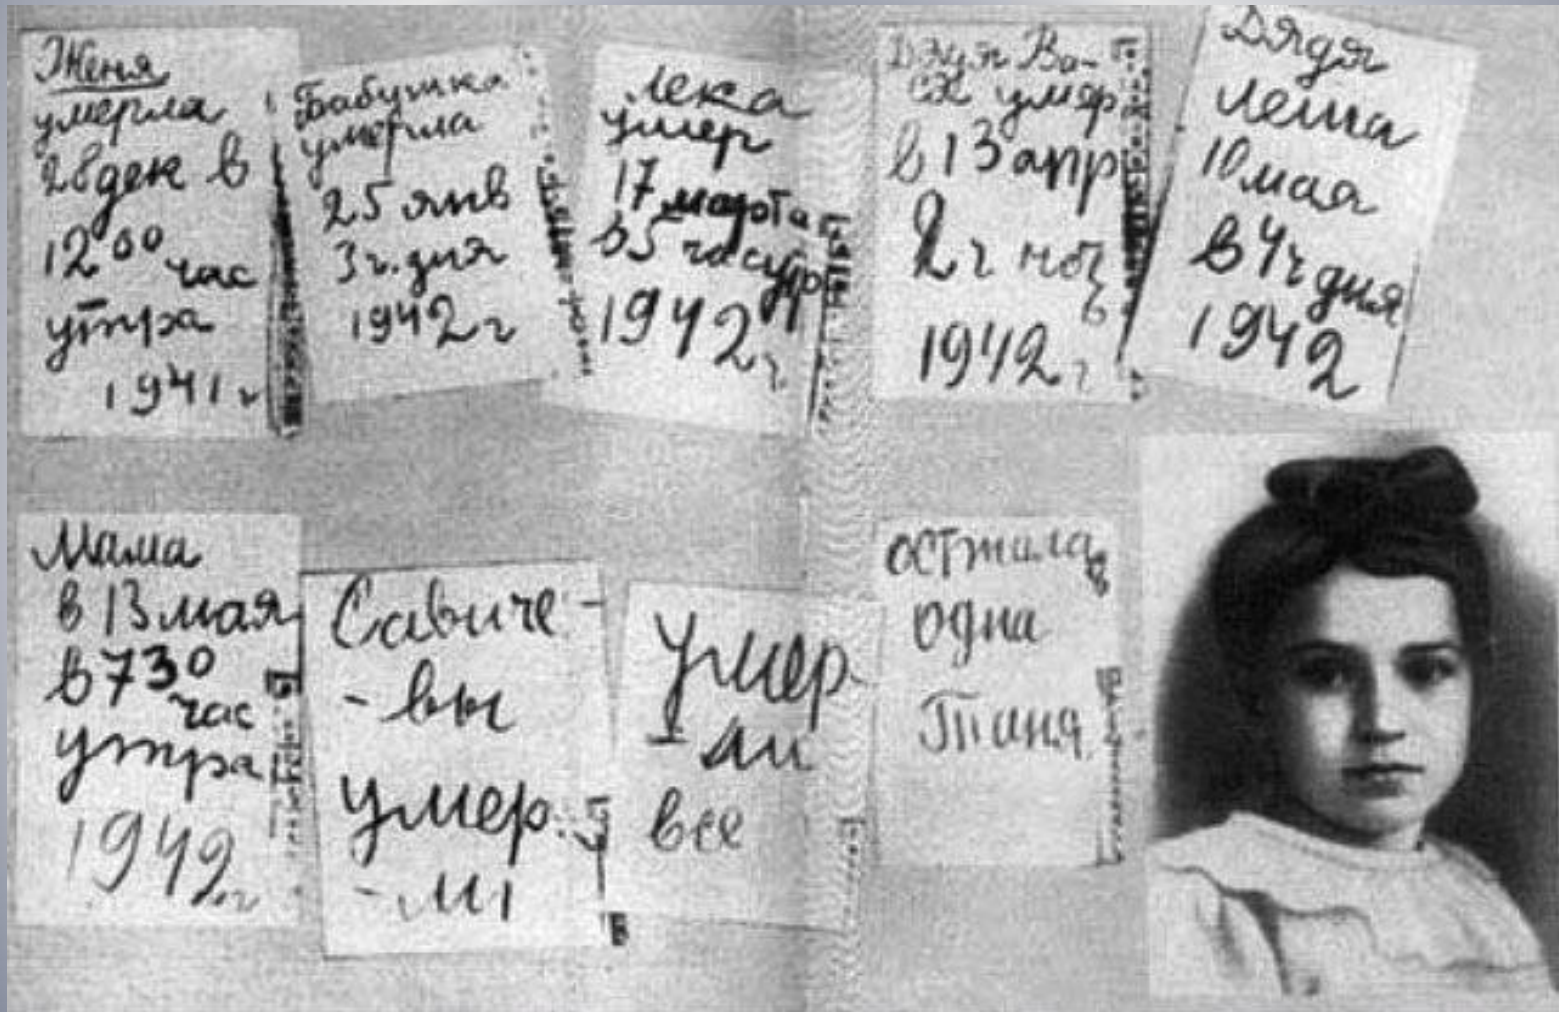 Женя
умерла
28 дек в
12 00 час
утра
1941 г
Бабушка
умерла
25 янв
3 ч. дня
1942 г
Лека
умер
17 марта
в 5 час утр
1942 г.
Дядя Ва-
ся умер
в 13 апр
2 ч ноч
1942 г
Дядя
Леша
10 мая
в 4 ч дня
1942
Мама
в 13 мая
в 730
час
утра
1942 г
Савиче-
-вы
умер
-ли
Умер
-ли
все
осталась
одна
Таня